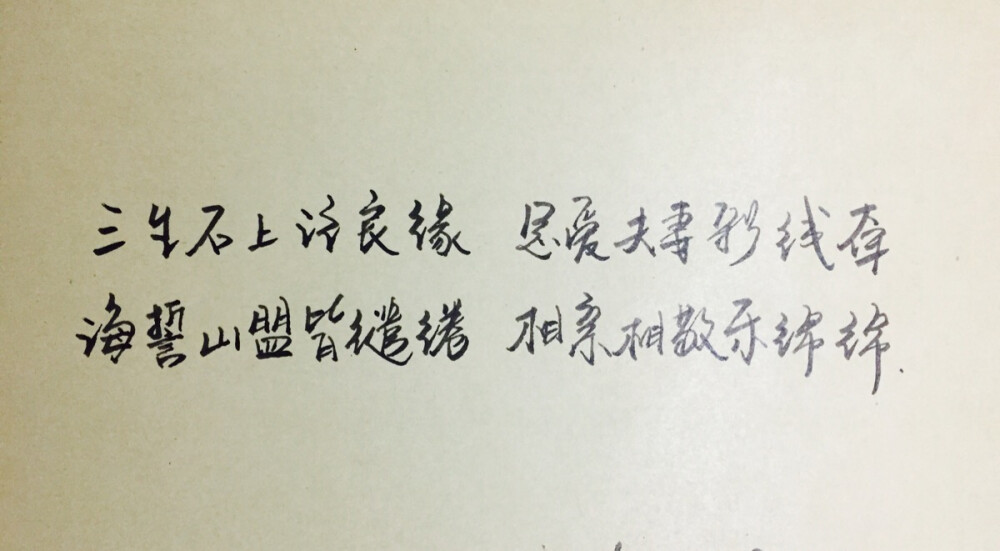 三生石上许良缘 恩爱夫妻彩线牵
海誓山盟皆缱绻 相亲相敬乐绵绵.